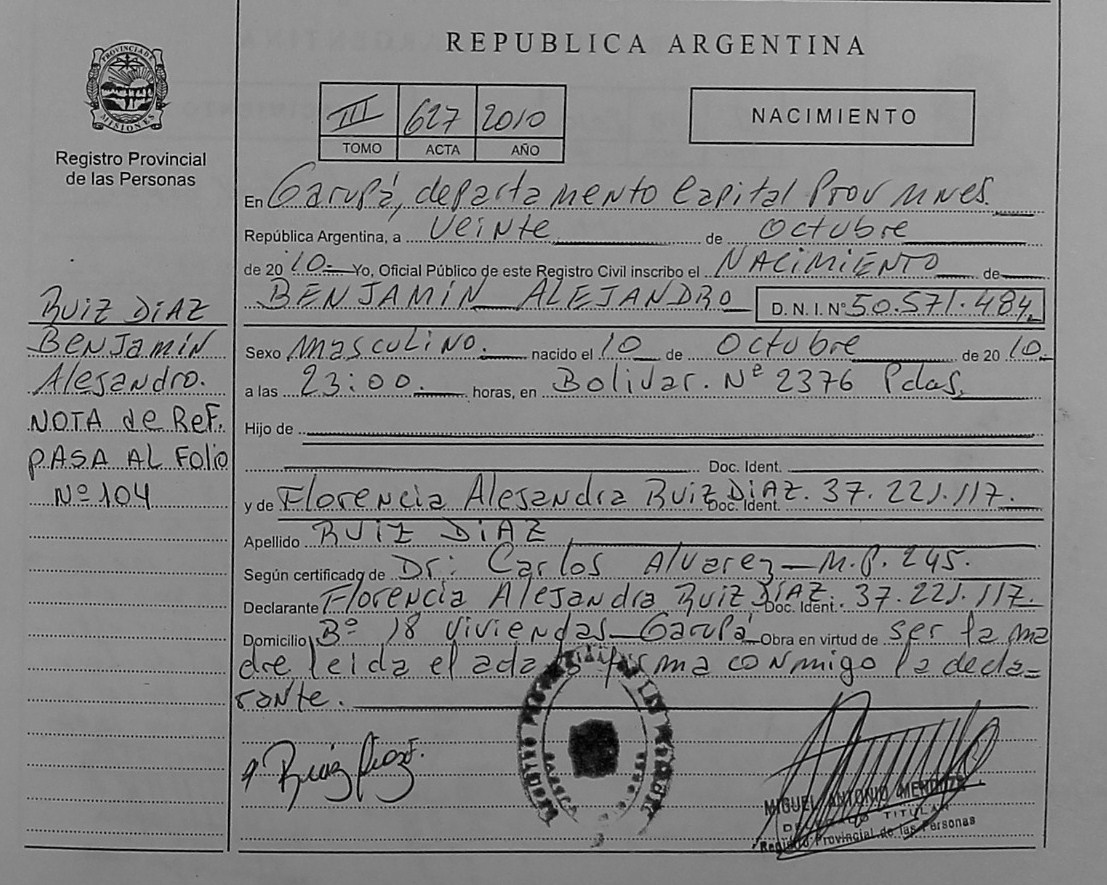 REPUBLICA ARGENTINA
PROVINCIA DE
MISIONES
Registro Provincial
de las Personas
III 627 2010
TOMO ACTA AÑO
NACIMIENTO
En Garupá, departamento Capital Prov Mnes.
República Argentina, a Veinte de Octubre
de 2010 Yo, Oficial Público de este Registro Civil inscribo el NACIMIENTO de
BENJAMÍN ALEJANDRO D.N.I. Nº 50.571.484
Sexo Masculino. nacido el 10 de Octubre de 2010
a las 23:00. horas, en Bolivar. Nº 2376 Pdas.
Hijo de
Doc. Ident.
y de Florencia Alejandra Ruiz Diaz. Doc. Ident. 37.221.117.
Apellido RUIZ DIAZ
Según certificado de Dr: Carlos Alvarez M.P. 245.
Declarante Florencia Alejandra Ruiz Diaz Doc. Ident. 37.221.117.
Domicilio Bº 18 Viviendas Garupá Obra en virtud de ser la ma
dre leida el acta firma conmigo la decla=
rante.
RUIZ DIAZ
Benjamín
Alejandro.
NOTA de REF.
PASA AL Folio
Nº 104
MIGUEL ANTONIO MENDOZA
TITULAR
Registro Provincial de las Personas